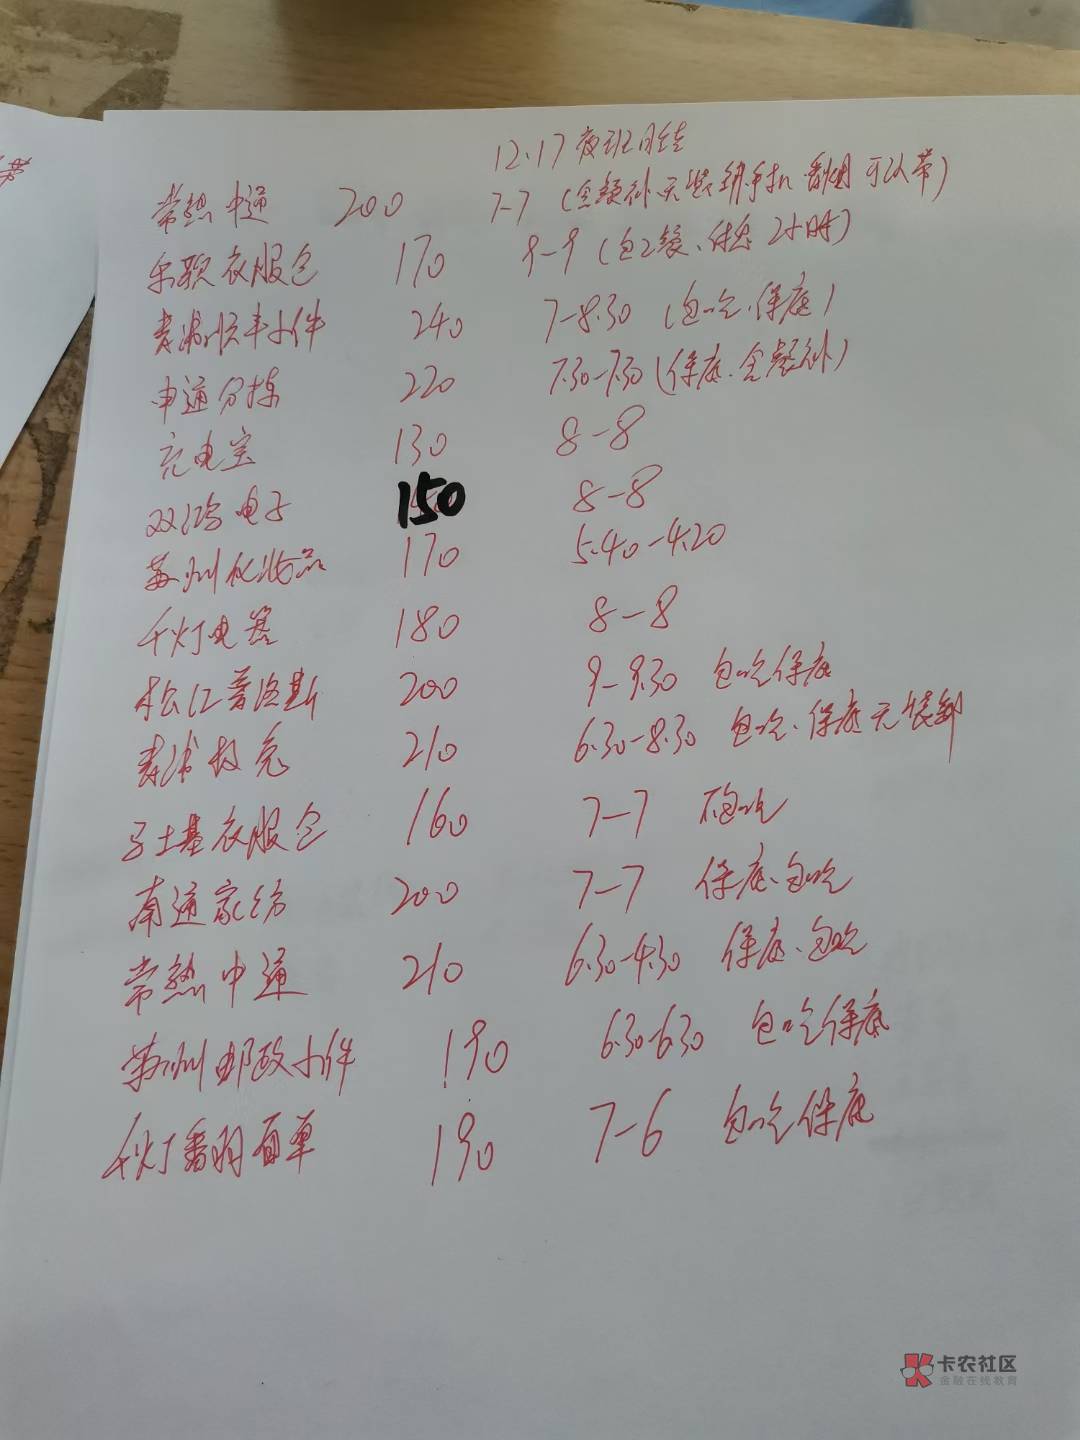 12.17夜班日结
常熟中通 200 7-7 (含餐补 无装卸 手机 香烟 可以带)
乐颖衣服仓 170 9-9 (包2餐、休息2小时)
青浦顺丰小件 240 7-8.30 (包吃、保底)
申通分拣 220 7.30-7.30 (保底、含餐补)
充电宝 130 8-8
双鸿电子 150 8-8
苏州化妆品 170 5.40-4.20
千灯电器 180 8-8
松江普洛斯 200 9-9.30 包吃保底
青浦极兔 210 6.30-8.30 包吃、保底 无装卸
马士基衣服仓 160 7-7 不包吃
南通家纺 200 7-7 保底、包吃
常熟中通 210 6.30-4.30 保底、包吃
苏州邮政小件 190 6.30-6.30 包吃保底
千灯番羽面单 190 7-6 包吃保底
带
卡农社区
金融在线教育